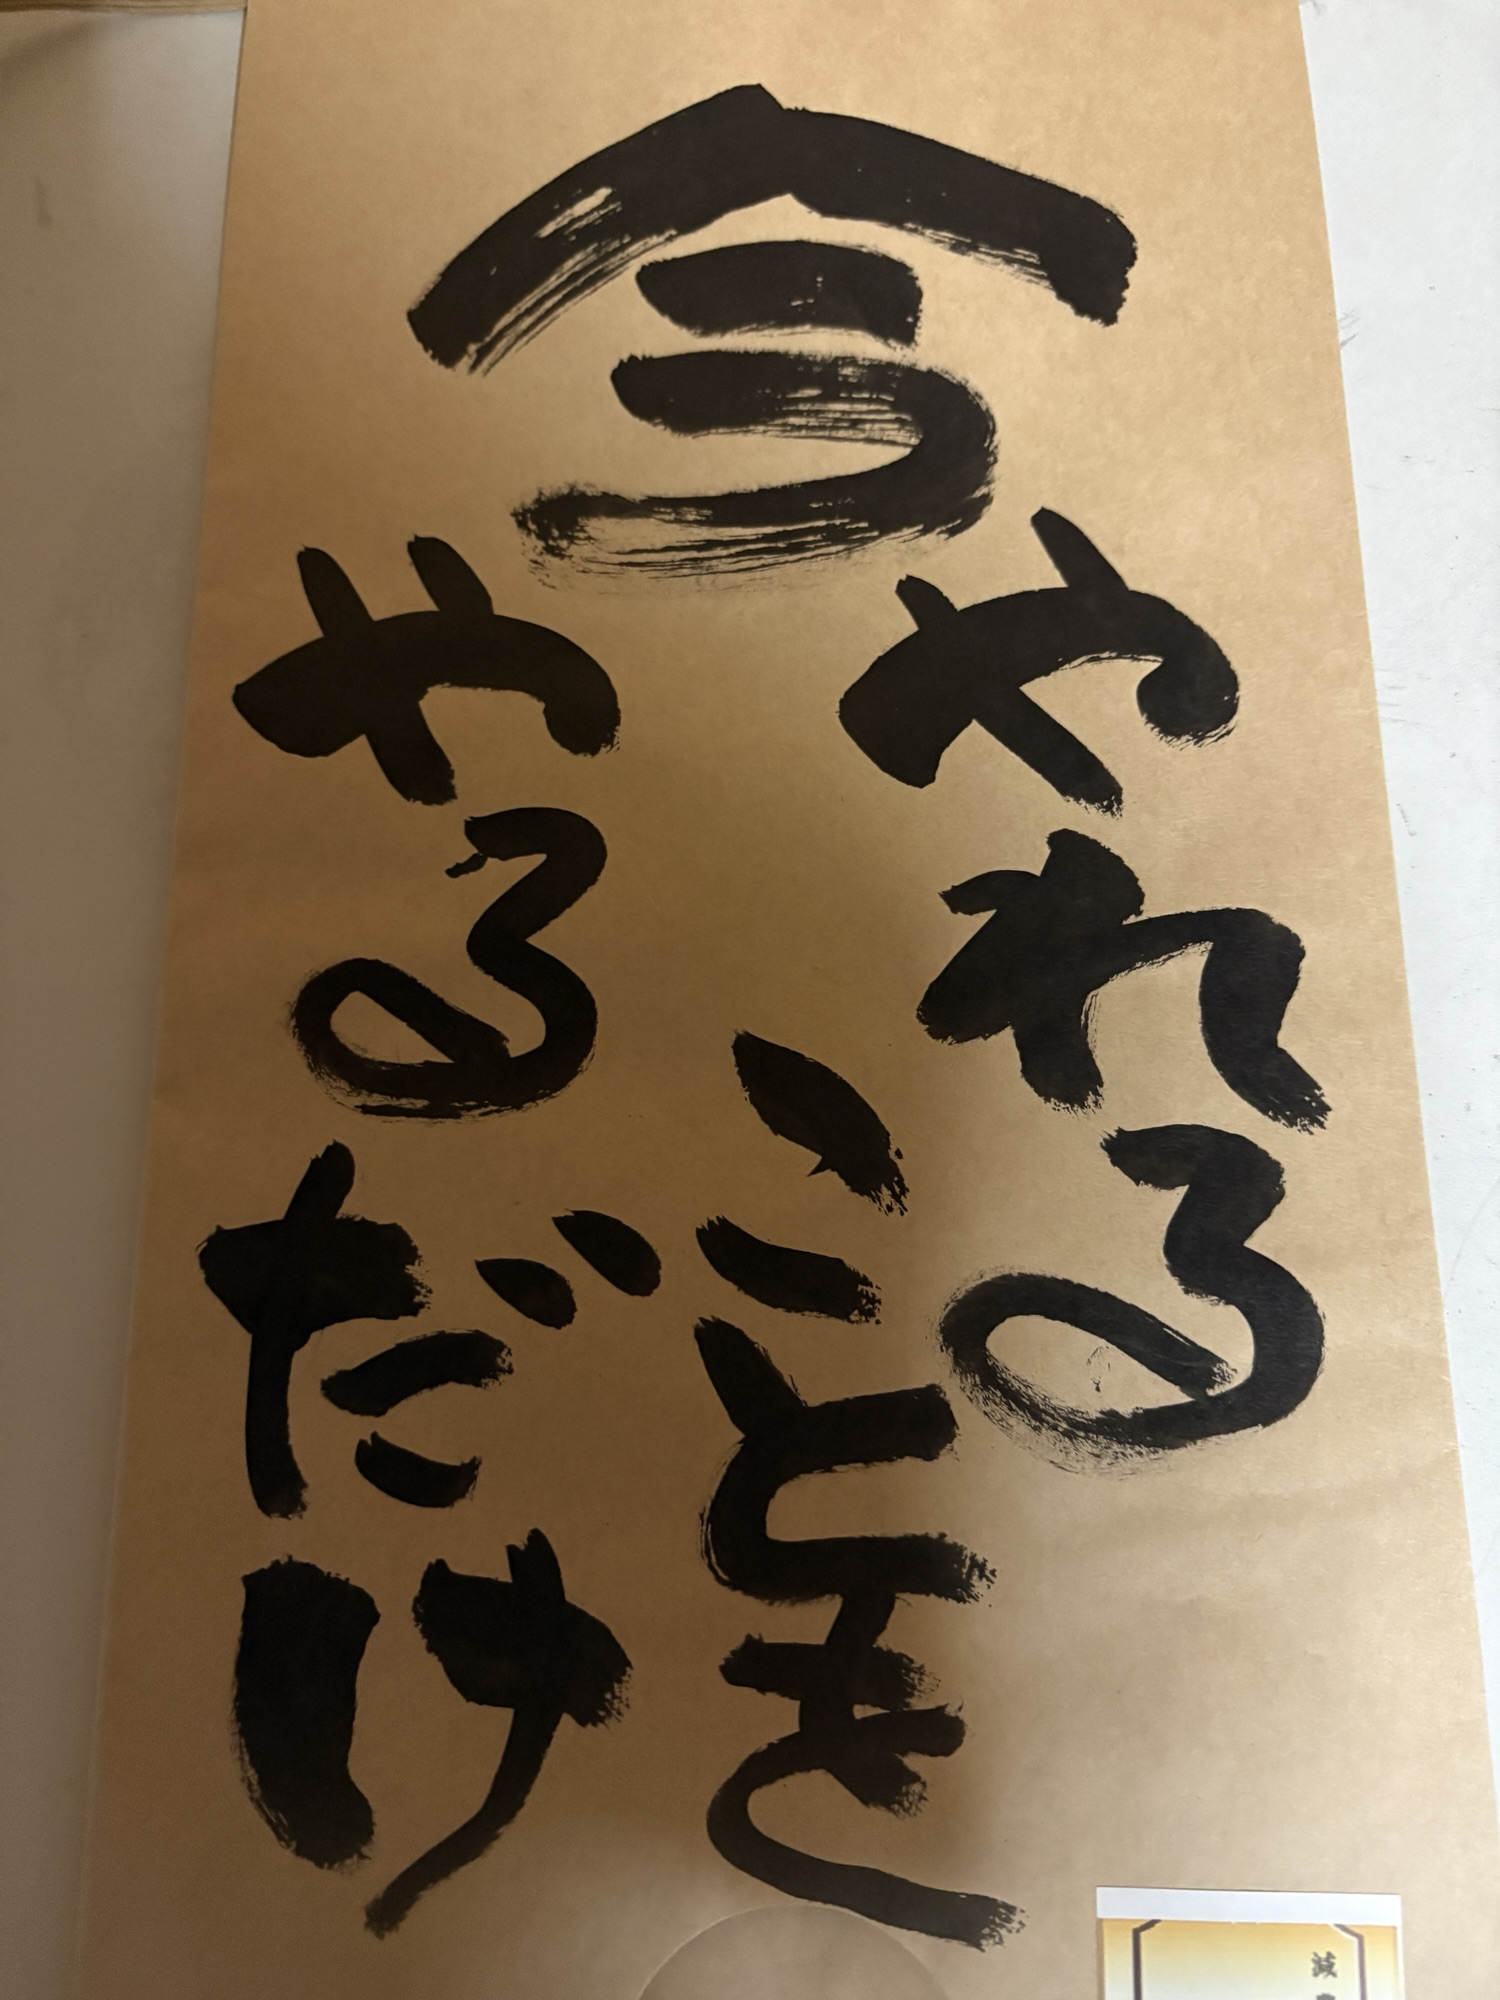 今
やれる
ことを
やるだけ